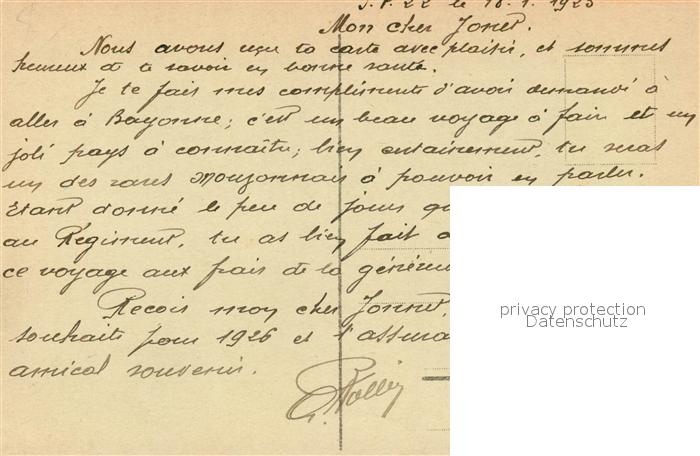 S.P. 22 le 18.1.1925
Mon cher Jonet.
Nous avons reçu ta carte avec plaisir, et sommes
heureux de te savoir en bonne santé.
Je te fais mes compliments d'avoir demandé à
aller à Bayonne; c'est un beau voyage à faire et un
joli pays à connaître; bien certainement, tu seras
un des rares Mouzonnais à pouvoir en parler.
Etant donné le peu de jours
au Régiment, tu as bien fait
ce voyage aux frais de la
Reçois mon cher Jonet,
souhaits pour 1926 et
amical souvenir.
privacy protection
Datenschutz